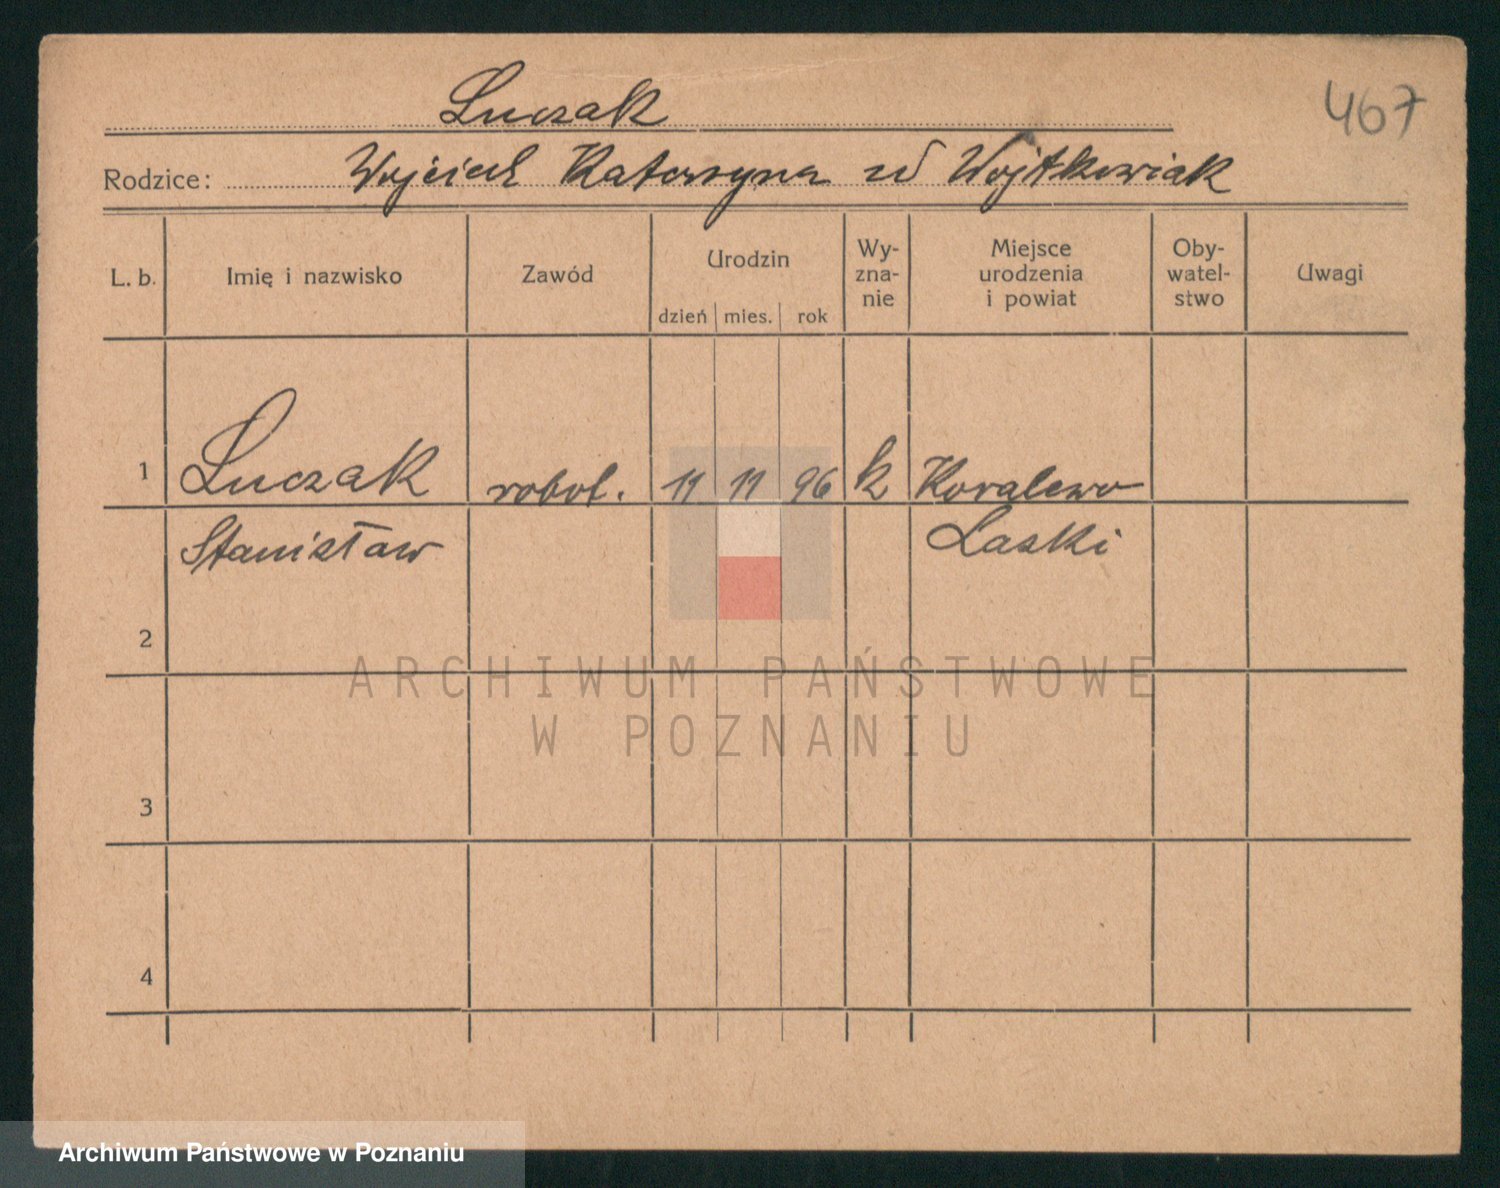 467
Łuczak
Rodzice: Wojciech Katarzyna zd Wojtkowiak
L. b. Imię i nazwisko Zawód Urodzin dzień mies. rok Wy-zna-nie Miejsce urodzenia i powiat Oby-watel-stwo Uwagi
1 Łuczak robot. 11 11 96 k Koralewo
Stanisław Laski
2
ARCHIWUM PAŃSTWOWE
W POZNANIU
3
4
Archiwum Państwowe w Poznaniu